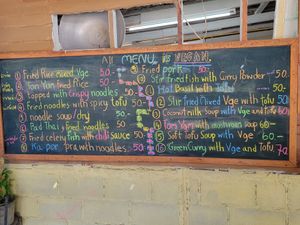 All MENU is VEGAN.
① Fried Rice mixed Vge 50.-
② Tom Yam fried Rice 50.-
③ Topped with Crispy noodles 50.-
④ Fried noodles with spicy Tofu 50.-
⑤ noodle soup/dry 50.-
⑥ Pad Thai fried noodles 50
⑦ Fried celery Fish with chili sauce 50.-
⑧ Ka por pra with noodles 50.-
Fried pork 50.-
Stir fried Fish with Curry Powder 50.-
① Hot Basil with 50.-
② Stir fried Mixed Vge with tofu 50
③ Coconut milk Soup with Vge and Tofu
④ Tom Yam with mushroom Soup 60-
⑤ Soft Tofu Soup with Vge 60-
⑥ Green Curry with Vge and Tofu 70